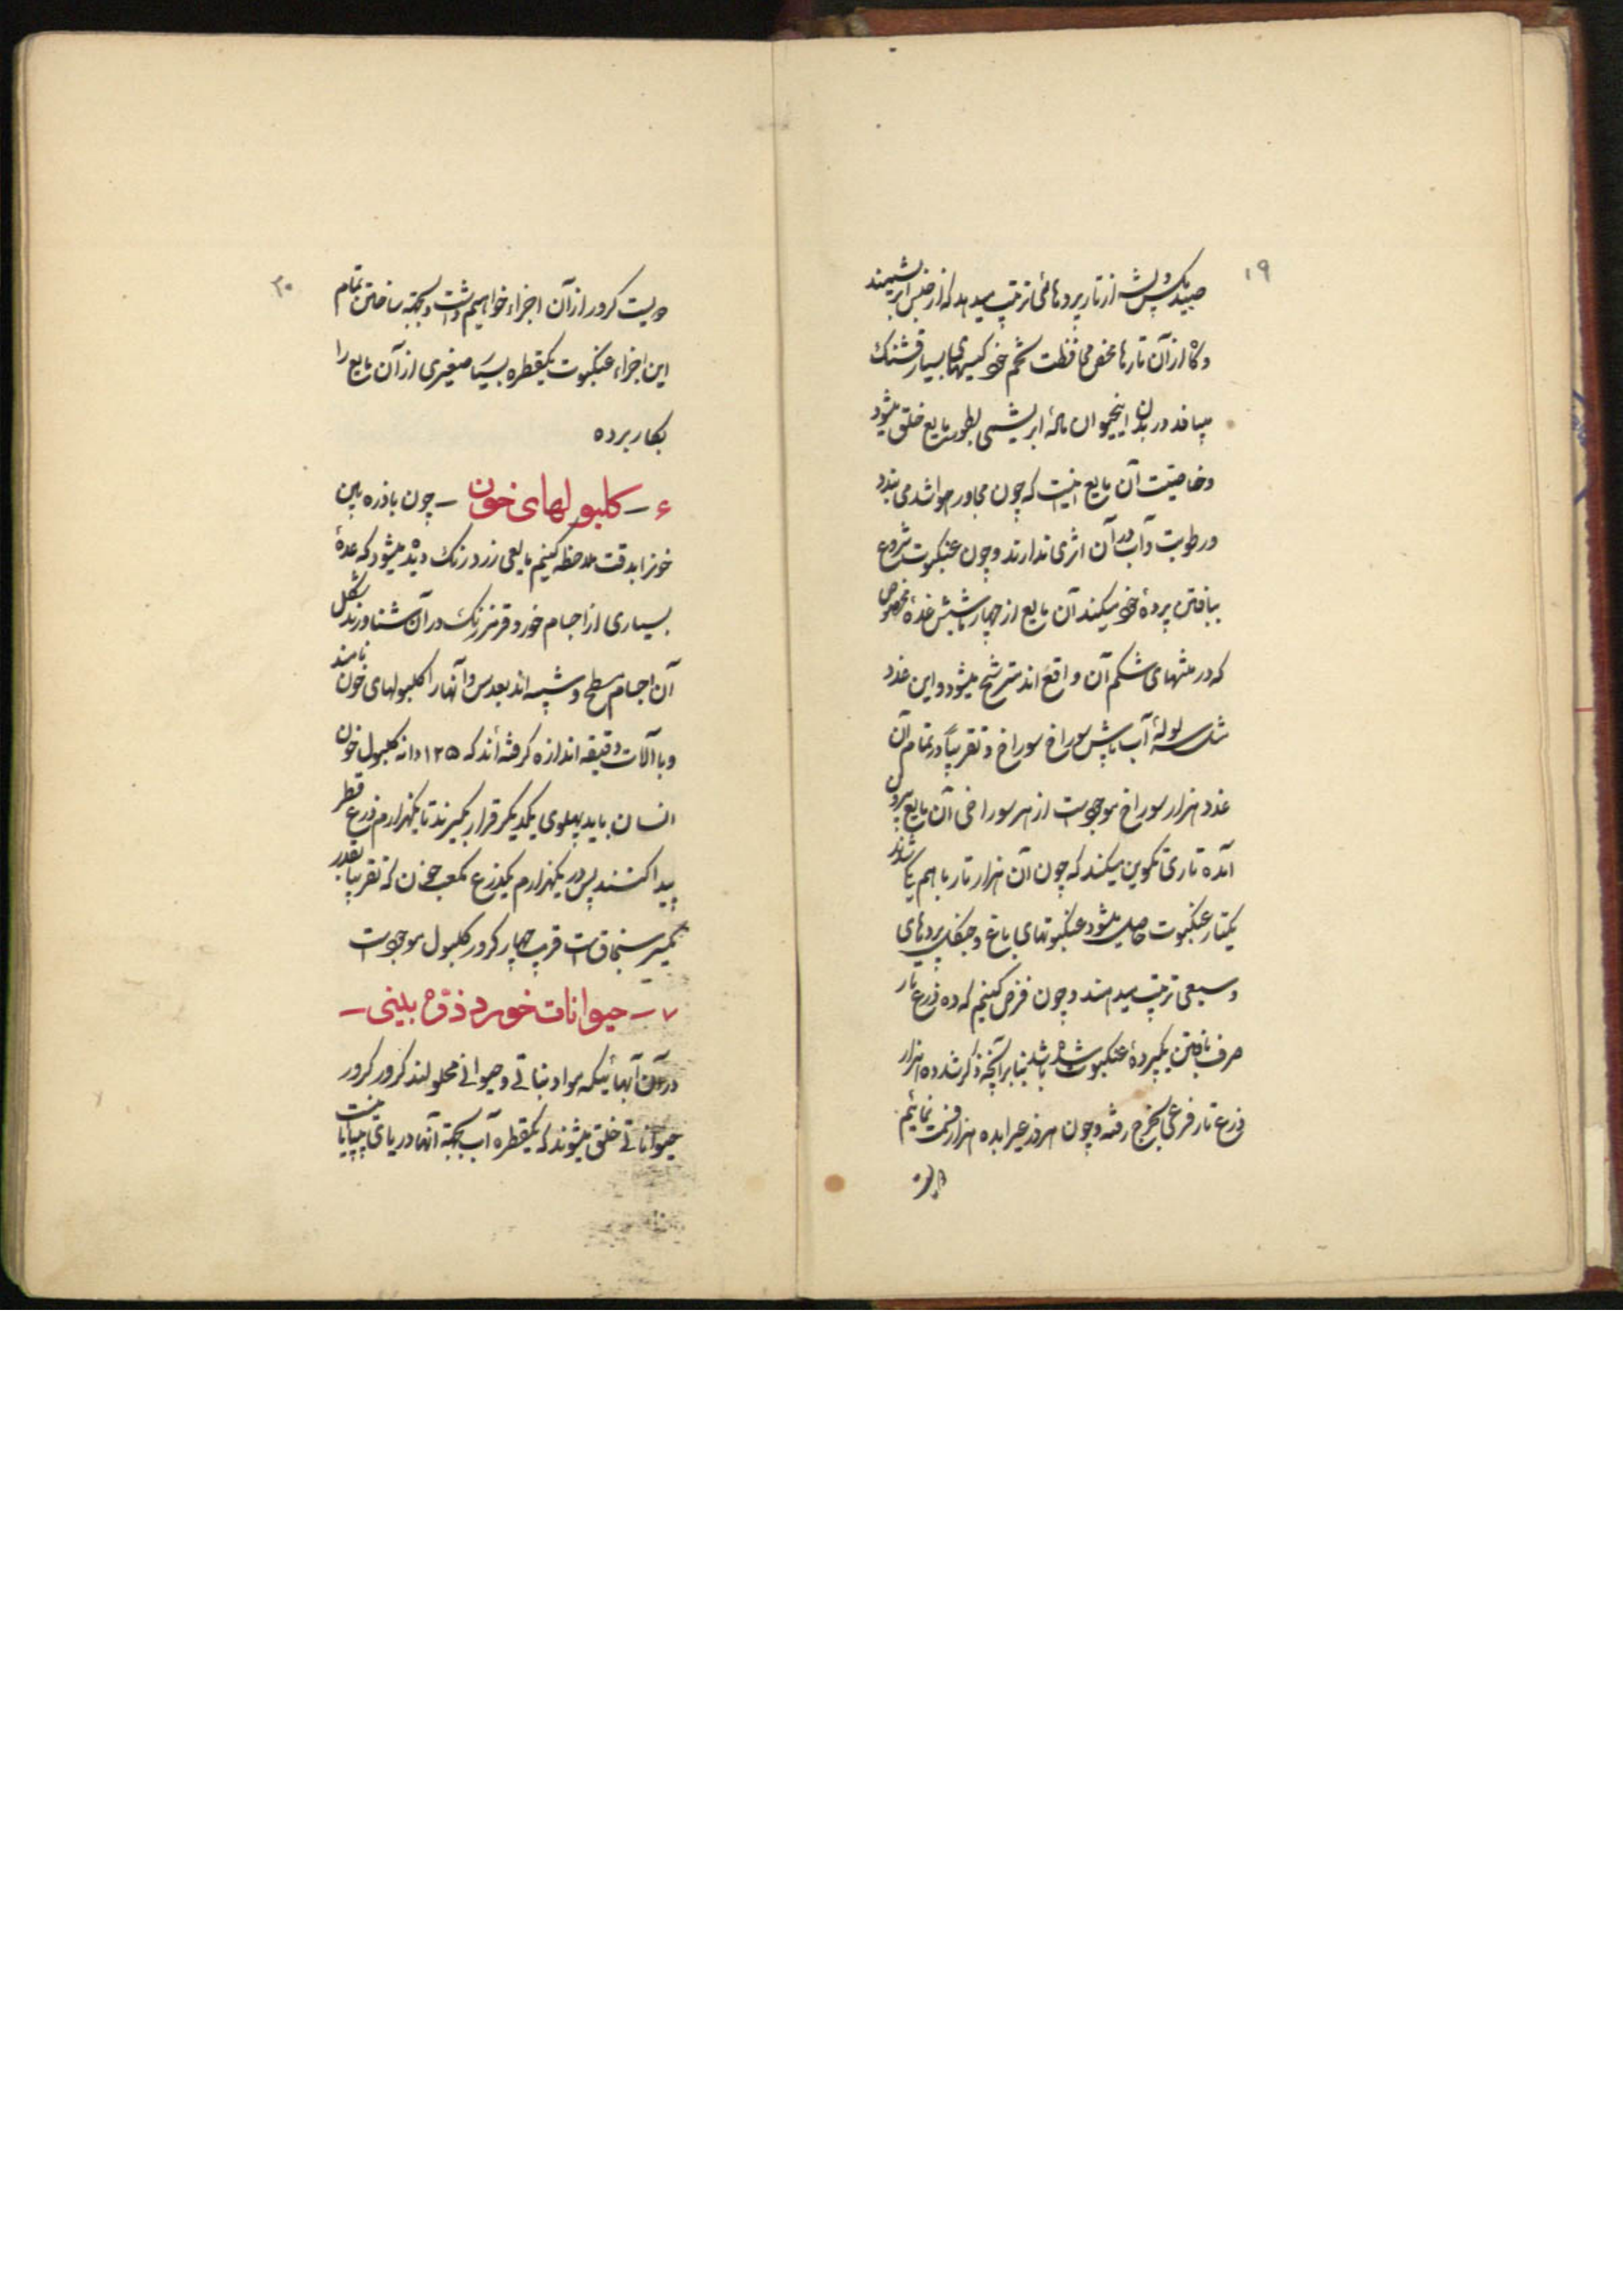 ۱۹
صید مگس و پشه از تار پرده‌هائی ترتیب میدهد که از جنس ابریشمند
و گاه از آن تارها محض محافظت تخم خود کیسهای بسیار قشنگ
میبافد در بدن اینحیوان مادهٔ ابریشمی بطور مایع خلق میشود
و خاصیت آن مایع اینست که چون مجاور هوا شد می بندد
و رطوبت و آب در آن اثری ندارند و چون عنکبوت شروع
ببافتن پردهٔ خود میکند آن مایع از چهار یا شش غدهٔ مخصوص
که در منتهای شکم آن واقع اند مترشح میشود و این غدد
مثل سر لولهٔ آب پاش سوراخ سوراخ و تقریباً در تمام آن
غدد هزار سوراخ موجود است از هر سوراخی آن مایع بیرون
آمده تاری تکوین میکند که چون آن هزار تار با هم یکی شوند
یکتار عنکبوت حاصل میشود عنکبوتهای باغ و جنگل پردهای
وسیعی ترتیب میدهند و چون فرض کنیم که ده ذرع تار
صرف بافتن یکپردهٔ عنکبوت شده باشد بنا بر آنچه ذکر شد ده هزار
ذرع تار فرعی بخرج رفته و چون هر ذرعیرا بده هزار قسمت نمائیم
دویست
۲۰
دویست کرور از آن اجزاء خواهیم داشت و بجهة ساختن تمام
این اجزاء عنکبوت یکقطره بسیار صغیری از آن مایع را
بکار برده
۶ – کلبولهای خون – چون با ذره بین
خونرا بدقت ملاحظه کنیم مایعی زرد رنگ دیده میشود که عدهٔ
بسیاری از اجسام خورد قرمز رنگ در آن شناورند شکل
آن اجسام مسطح و شبیه اند بعدس و آنها را کلبولهای خون نامند
و با آلات دقیقه اندازه گرفته‌اند که ۱۲۵ دانه کلبول خون
انسان باید پهلوی یکدیگر قرار بگیرند تا یکهزارم ذرع قطر
پیدا کنند پس در یکهزارم یکذرع مکعب خون که تقریباً بقدر
یکسر سنجاق است قریب چهار کرور کلبول موجود است
۷ – حیوانات خورد ذرّه بینی –
در آن آبهائیکه مواد نباتی و حیوانی محلولند کرور کرور
حیواناتی خلق میشوند که یکقطره آب بجهة آنها دریای بی پایانست